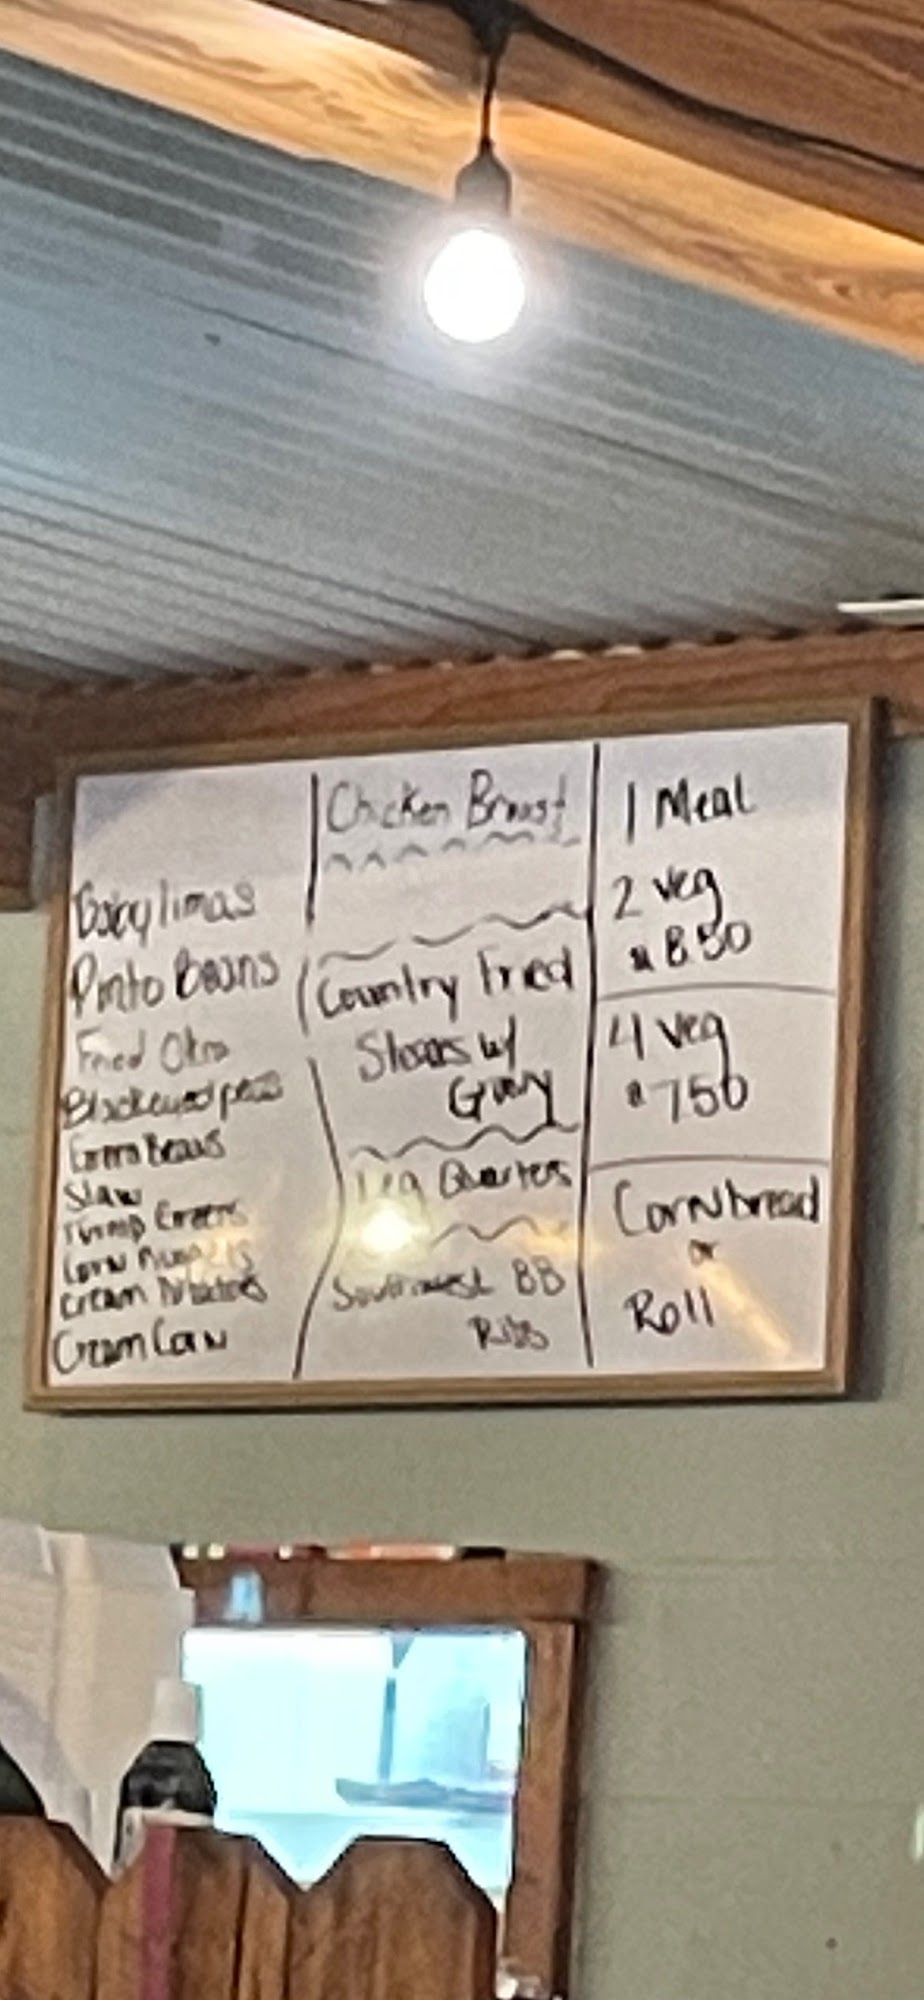 Baby limas
Pinto Beans
Fried Okra
Blackeyed peas
Green Beans
Slaw
Turnip Greens
Corn Nuggets
Cream Potatoes
Cream Corn
Chicken Breast
Country Fried
Steaks w/
Gravy
Leg Quarters
Southwest BB
Ribs
1 Meal
2 veg
$8.50
4 veg
$7.50
Cornbread
or
Roll